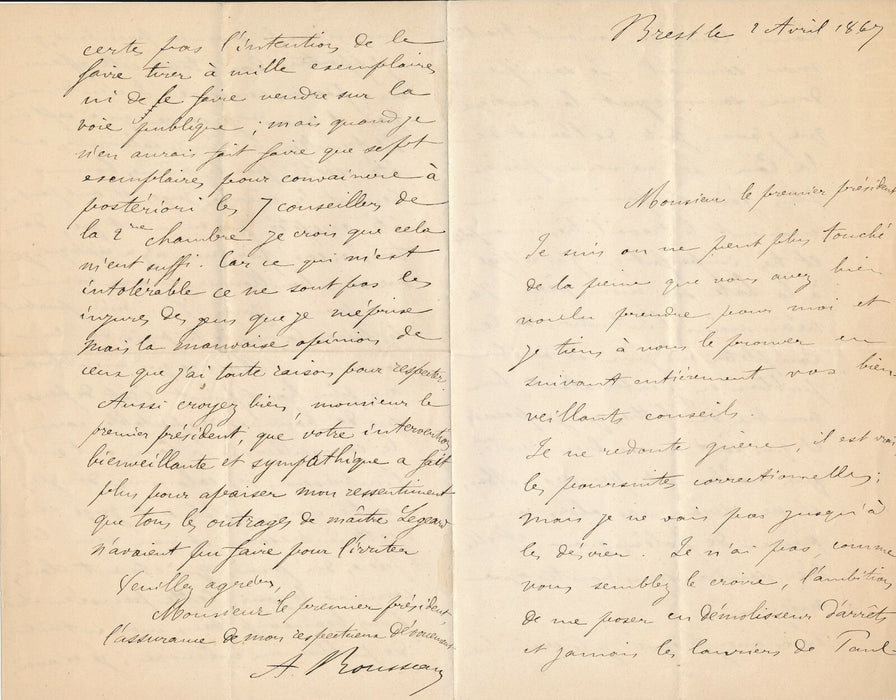 Brest le 2 Avril 1867
Monsieur le premier président
Je suis on ne peut plus touché
de la peine que vous avez bien
voulu prendre pour moi et
je tiens à vous le prouver en
suivant entièrement vos bien-
veillants conseils.
Je ne redoute guère, il est vrai
les poursuites correctionnelles;
mais je ne vais pas jusqu'à
les désirer. Je n'ai pas, comme
vous semblez le croire, l'ambition
de me poser en démolisseur d'arrêts
et jamais les lauriers de Paul-
certes pas l'intention de le
faire tirer à mille exemplaires
ni de le faire vendre sur la
voie publique; mais quand je
n'en aurais fait faire que sept
exemplaires pour convaincre à
postériori les 7 conseillers de
la 2me chambre je crois que cela
m'eut suffi. Car ce qui m'est
intolérable ce ne sont pas les
injures des gens que je méprise
mais la mauvaise opinion de
ceux que j'ai toute raison pour respecter.
Aussi croyez bien, monsieur le
premier président, que votre intervention
bienveillante et sympathique a fait
plus pour apaiser mon ressentiment
que tous les outrages de maître
n'avaient pu faire pour l'irriter
Veuillez agréer,
Monsieur le premier président,
l'assurance de mon respectueux dévouement
A. Rousseau